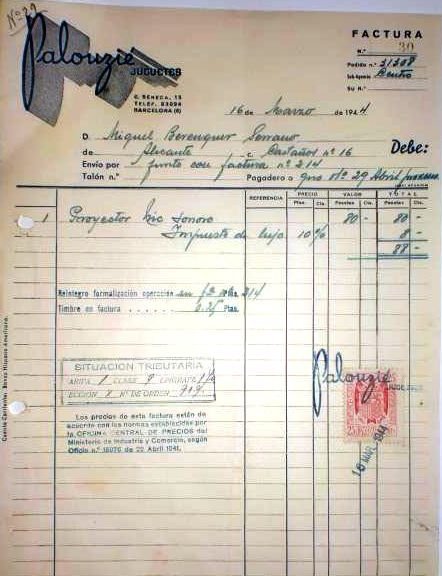 Nº 29
Palouzie
JUGUETES
C. SENECA, 15
TELÉF. 83094
BARCELONA (6)
FACTURA
N.º 30
Pedido n.º 31308
Sub-Agencia Centro
Su N.º
16 de Marzo de 1944
D. Miguel Berenguer Serrano
de Alicante c. Castaños nº 16
Debe:
Envío por Junto con factura nº 214
Talón n.º Pagadero a giro 29 Abril
REFERENCIA PRECIO VALOR TOTAL
Ptas. Cts. Pesetas Cts. Pesetas Cts.
1 Proyector Nic Sonoro 80 - 80 -
Impuesto de lujo 10% 8 -
88 -
Reintegro formalización operación en 214
Timbre en factura . . . . . . 0.25 Ptas.
SITUACION TRIBUTARIA
TARIFA 1 CLASE 9 EPIGRAFE
SECCION Nº DE ORDEN 919
Los precios de esta factura están de
acuerdo con las normas establecidas por
la OFICINA CENTRAL DE PRECIOS del
Ministerio de Industria y Comercio, según
Oficio n.º 18076 de 22 Abril 1941.
Palouzie
16 MAR. 1944
Cuenta Corriente: Banco Hispano Americano.